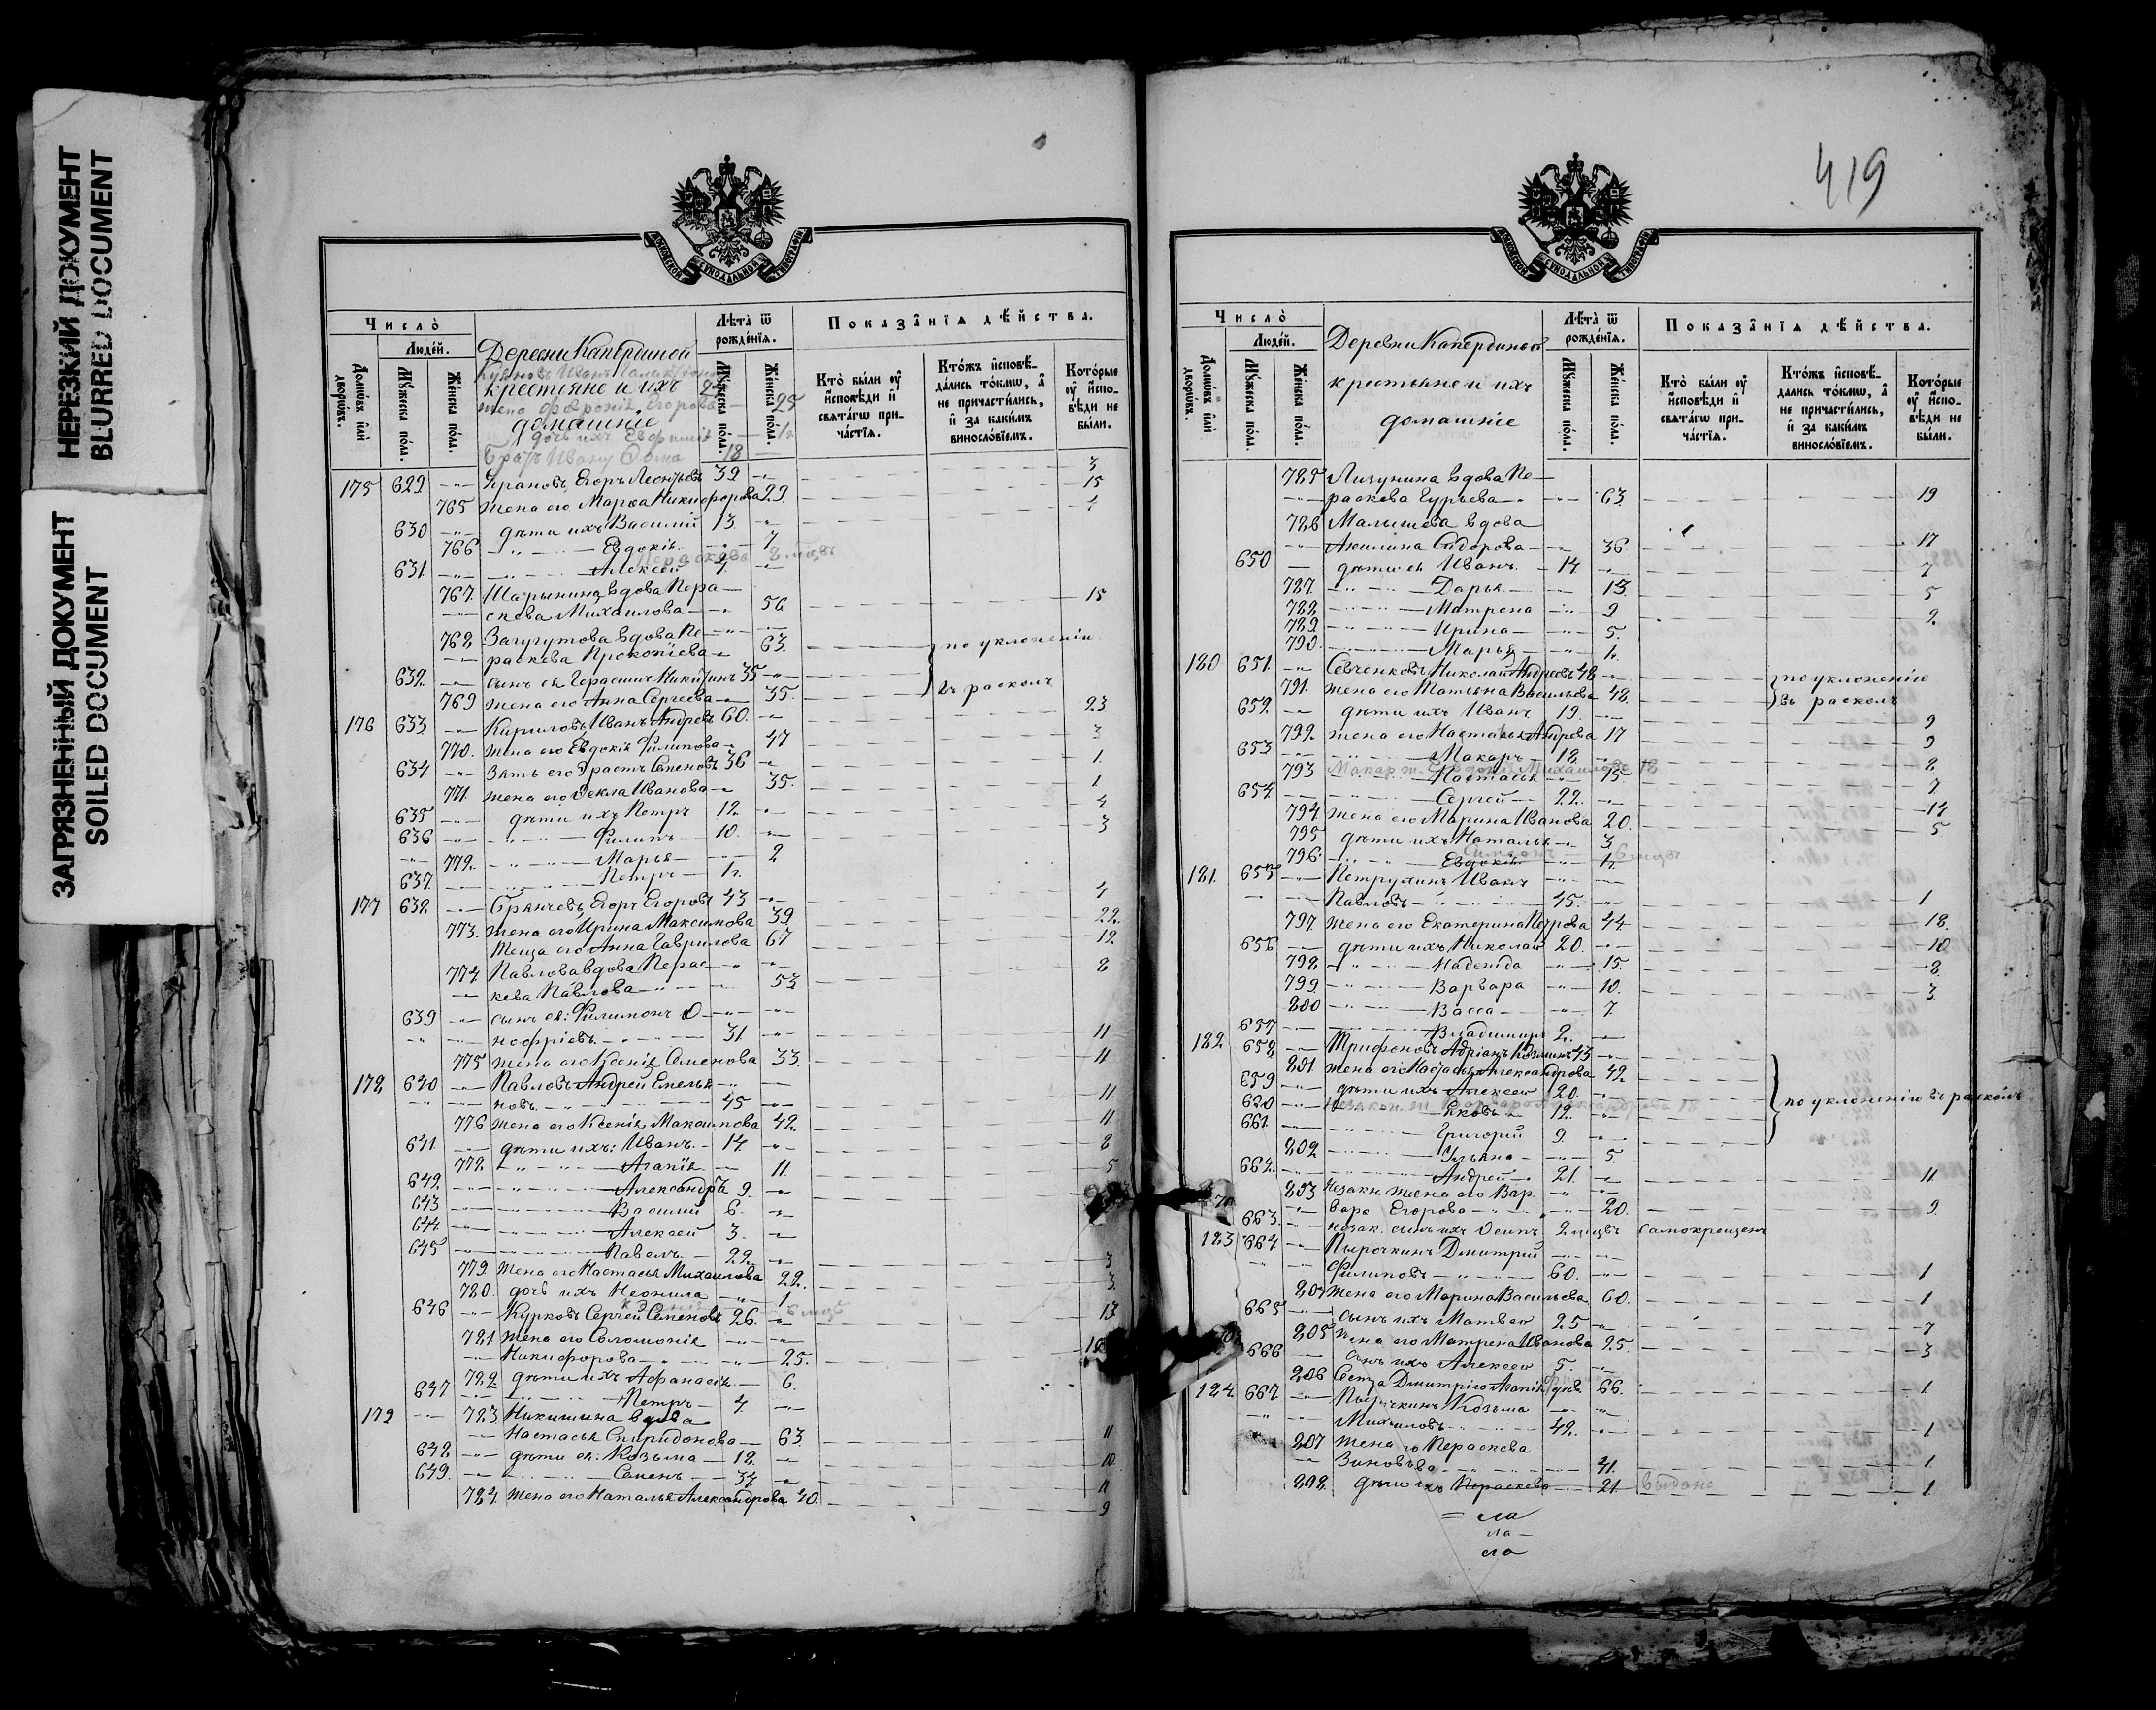 НЕРЕЗКИЙ ДОКУМЕНТ
BLURRED DOCUMENT
ЗАГРЯЗНЕННЫЙ ДОКУМЕНТ
SOILED DOCUMENT
МОСКОВСКОЙ СѴНОДАЛЬНОЙ ТИПОГРАФІИ
Число̀
Людей.
Лѣта̀ ѿ рожде́нїѧ.
Показа̑нїѧ дѣ́йства.
Домѡ́въ и҆лѝ дворѡ́въ.
Мꙋ́жеска по́ла.
Же́нска по́ла.
Деревни Капердиной
крестьяне и ихъ
домашніе
жена Феѳронія Егорова 25
дочь ихъ Евфимія 1/2
братъ Ивану Ѳома 18
Мꙋ́жеска по́ла.
Же́нска по́ла.
Кто̀ бы́ли ᲂу҆ и҆сповѣди и҆ свѧта́гѡ прича́стїѧ.
Кто́жъ и҆сповѣ́дались то́кмѡ, а҆ не причасти́лись, и҆ за каки́мъ винослові́емъ.
Кото́рые ᲂу҆ и҆сповѣди не бы́ли.
175 629 Егоръ Леонтьевъ 39 3
765 жена его Марѳа Никифорова 29 15
630 дѣти ихъ Василій 13 4
766 Евдокія 7
631 Алексей 4
767 Шарынина вдова Пера
скева Михаилова 56 15
768 Загугутова вдова Пе
раскева Прокопіева 63 по уклоненію
632 сынъ ея Герасимъ Никитинъ 35
769 жена его Анна Сергеева 35 въ расколъ
176 633 Кириловъ Иванъ Андревъ 60 23
770 жена его Евдокія Филипова 47 3
634 Зять его Ерастъ Семеновъ 36 1
771 жена его Ѳекла Иванова 35 1
635 дѣти ихъ Петръ 12 4
636 Филипъ 10 3
772 Марья 2
637 Петръ 1/2
177 638 Егоръ Егоровъ 43 4
773 жена его Ирина Максимова 39 22
Теща его Анна Гаврилова 67 12
774 Павлова вдова Перас
кева Павлова 53 8
639 сынъ ея: Филимонъ О
ноѳріевъ 31 11
775 жена его Ксенія Семенова 33 11
178 640 Павловъ Андрей Емелья
новъ 45 11
776 жена его Ксенія Максимова 42 11
641 дѣти ихъ: Иванъ 14 8
778 Агапія 11 5
642 Александръ 9
643 Василій 6
644 Алексей 3
645 Павелъ 22 3
779 жена его Настасья Михаилова 22 3
780 дочь ихъ Неонила 1
646 Курковъ Сергей Семеновъ 26 13
781 жена его Соломонія
Никифорова 25
782 дѣти ихъ Афанасія 6
647 Петръ 4
179 783 Никишина вдова
Настасья Спиридонова 63 11
648 дѣти ея: Козьма 18 10
649 Семенъ 34 11
784 жена его Наталья Александрова 40 9
419
МОСКОВСКОЙ СѴНОДАЛЬНОЙ ТИПОГРАФІИ
Число̀
Людей.
Лѣта̀ ѿ рожде́нїѧ.
Показа̑нїѧ дѣ́йства.
Домѡ́въ и҆лѝ дворѡ́въ.
Мꙋ́жеска по́ла.
Же́нска по́ла.
Деревни Капердиной
крестьяне и ихъ
домашніе
Мꙋ́жеска по́ла.
Же́нска по́ла.
Кто̀ бы́ли ᲂу҆ и҆сповѣди и҆ свѧта́гѡ прича́стїѧ.
Кто́жъ и҆сповѣ́дались то́кмѡ, а҆ не причасти́лись, и҆ за каки́мъ винослові́емъ.
Кото́рые ᲂу҆ и҆сповѣди не бы́ли.
785 Лизунина вдова Пе
раскева Гурьева 63 19
786 Малышева вдова
Акилина Сидорова 36 17
650 дѣти ея Иванъ 14 7
787 Дарья 13 5
788 Матрена 9 2
789 Ирина 5
790 Марья 1/2
180 651 Севченковъ Николай Андреевъ 48 по уклоненію
791 жена его Татьяна Васильева 48 въ расколъ
652 дѣти ихъ Иванъ 19 9
792 жена его Настасья Андрева 17 9
653 Макаръ 18 8
793 Настасья 15 7
654 Сергей 22 14
794 жена его Марина Иванова 20 5
795 дѣти ихъ Наталья 3
796 Евдокія 1/2
181 655 Петрухинъ Иванъ
Павловъ 45 1
797 жена его Екатерина Петрова 44 18
656 дѣти ихъ Николай 20 10
798 Надежда 15 8
799 Варвара 10 3
800 Васса 7
657 Владимиръ 2
182 658 Трифоновъ Адріанъ Козминъ 43
801 жена его Настасья Александрова 42
659 дѣти ихъ Алексей 20 по уклоненію въ расколъ
660 Яковъ 12
661 Григорій 9
802 Ульяна 5
662 Андрей 21 11
803 незакн. жена его Вар
вара Егорова 20 9
663 незак. сынъ ихъ Осипъ 2 мцвъ самокрещенъ
183 664 Пырочкинъ Дмитрій
Филиповъ 60 1
804 жена его Марина Васильева 60 1
665 сынъ ихъ Матвей 25 7
805 жена его Матрена Иванова 25 3
666 сынъ ихъ Алексей 5
806 Сестра Дмитрію Агапія дѣв. 66 1
184 667 Пырочкинъ Козьма
Михаиловъ 42 1
807 жена его Перасково
Зиновьева 41 1
808 дѣти ихъ Параскева 21 выдана 1